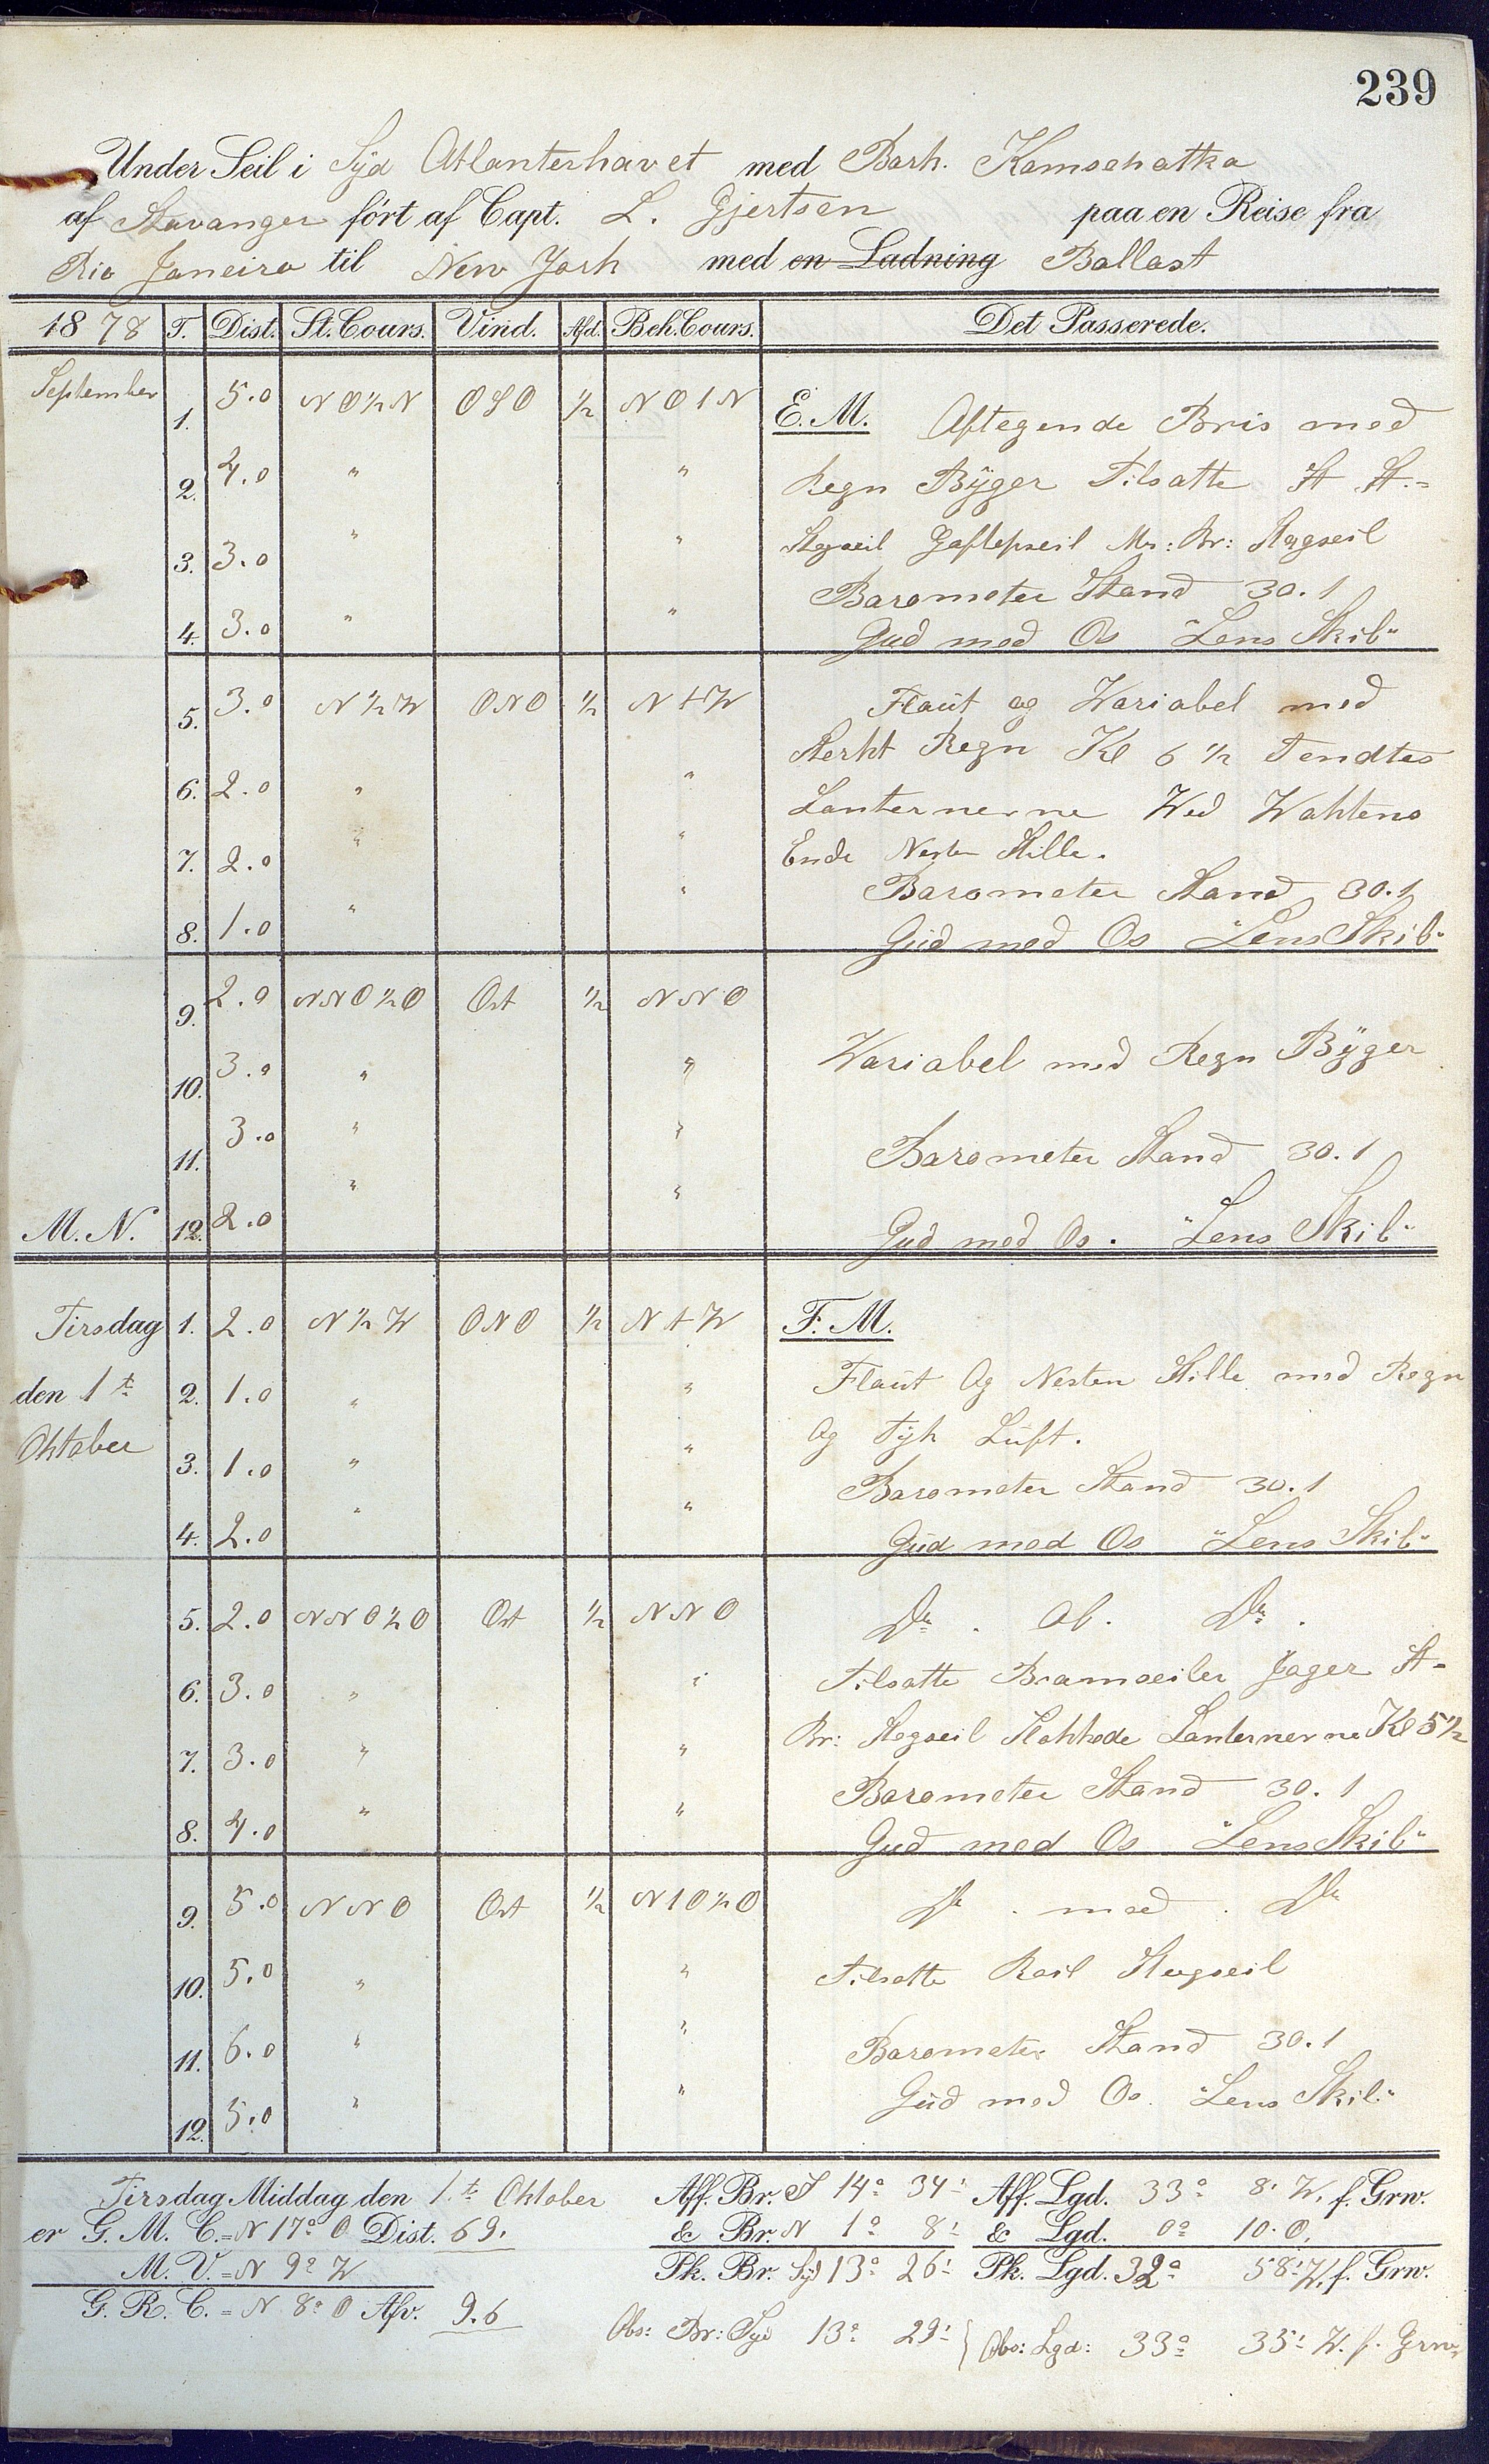 239
Under Seil i Syd Atlanterhavet med Bark. Kamschatka
af Stavanger fört af Capt. L. Gjertsen paa en Reise fra
Rio Janeiro til New York med en Ladning Ballast
18 78 T. Dist. St. Cours. Vind. Afd. Beh. Cours. Det Passerede.
September 1. 5.0 N O ½ N O S O ½ N O t N E. M. Aftegende Bris med
2. 4.0 " " Regn Byger Tilsatte St St.=
3. 3.0 " " Stagseil Gaflepseil Ms: Br: Stagseil
Barometer Stand 30.1
4. 3.0 " " Gud med Os "Lens Skib"
5. 3.0 N ½ W O N O ½ N t W Flaut og Wariabel med
Sterkt Regn Kl 6 ½ Tendtes
6. 2.0 " " Lanternerne Wed Wahtens
7. 2.0 " " Ende Nesten Stille.
Barometer Stand 30.1
8. 1.0 " " Gud med Os "Lens Skib"
9. 2.0 N N O ½ O Ost ½ N N O
10. 3.0 " " Wariabel med Regn Byger
11. 3.0 " " Barometer Stand 30.1
M. N. 12. 2.0 " " Gud med Os. "Lens Skib"
Tirsdag 1. 2.0 N ½ W O N O ½ N t W F. M.
den 1te 2. 1.0 " " Flaut Og Nesten Stille med Regn
Oktober 3. 1.0 " " Og Tyk Luft.
Barometer Stand 30.1
4. 2.0 " " Gud med Os "Lens Skib"
5. 2.0 N N O ½ O Ost ½ N N O Do. Ob. Do.
6. 3.0 " " Tilsatte Bramseiler Jager St=
7. 3.0 " " Br: Stagseil Slohkede Lanternerne Kl 5½
Barometer Stand 30.1
8. 4.0 " " Gud med Os "Lens Skib"
9. 5.0 N N O Ost ½ N t O ½ O Do. med. Do
10. 5.0 " " Tilsatte Roil Stagseil
11. 6.0 " " Barometer Stand 30.1
12. 5.0 " " Gud med Os. "Lens Skib"
Tirsdag Middag den 1.te Oktober Aff. Br. S 14° 34' Aff. Lgd. 33° 8' W. f. Grw.
er G. M. C. = N 17° O Dist. 69. & Br. N 1° 8' & Lgd. 0° 10. O.
M. V. = N 9° W Pk. Br. Syd 13° 26' Pk. Lgd. 32° 58' W. f. Grw.
G. R. C. = N. 8° O Afv. 9.6
Obs: Br: Syd 13° 29' } Obs: Lgd: 33° 35' W. f. Grw.